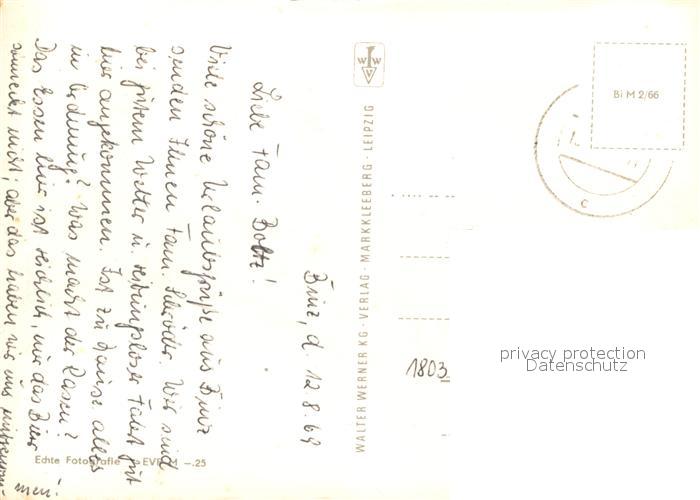 Binz, d. 12.8.69
Liebe Fam. Boltz!
Viele schöne Urlaubsgrüße aus Binz
senden Ihnen Fam. Schröder. Wir sind
bei gutem Wetter u. reibungsloser Fahrt gut
hier angekommen. Ist zu Hause alles
in Ordnung? Was macht der Rasen?
Das Essen hier ist reichlich, nur das Bier
schmeckt nicht; aber das haben wir uns
men!
WALTER WERNER KG · VERLAG · MARKKLEEBERG · LEIPZIG
WWV
Echte Fotografie EVP M -.25
Bi M 2/66
c
1803
privacy protection
Datenschutz